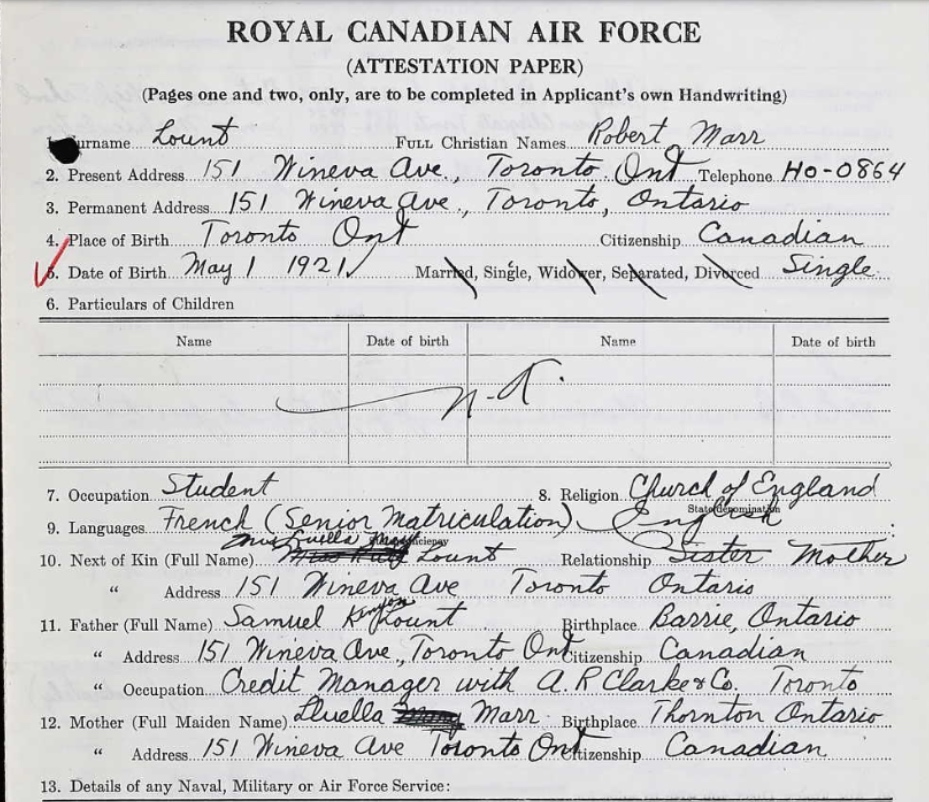 ROYAL CANADIAN AIR FORCE
(ATTESTATION PAPER)
(Pages one and two, only, are to be completed in Applicant's own Handwriting)
1. Surname Lount FULL Christian Names Robert Marr
2. Present Address 151 Wineva Ave., Toronto Ont Telephone HO-0864
3. Permanent Address 151 Wineva Ave., Toronto, Ontario
4. Place of Birth Toronto Ont Citizenship Canadian
5. Date of Birth May 1 1921 Married, Single, Widower, Separated, Divorced Single
6. Particulars of Children
Name Date of birth Name Date of birth
7. Occupation Student 8. Religion Church of England
State denomination
9. Languages French (Senior Matriculation) English
Luella
10. Next of Kin (Full Name) Lount Relationship Sister Mother
" Address 151 Wineva Ave Toronto Ontario
11. Father (Full Name) Samuel Kenyon Lount Birthplace Barrie, Ontario
" Address 151 Wineva Ave., Toronto Ont Citizenship Canadian
" Occupation Credit Manager with A. R Clarke & Co. Toronto
12. Mother (Full Maiden Name) Lluella Marr Birthplace Thornton Ontario
" Address 151 Wineva Ave Toronto Ont Citizenship Canadian
13. Details of any Naval, Military or Air Force Service: